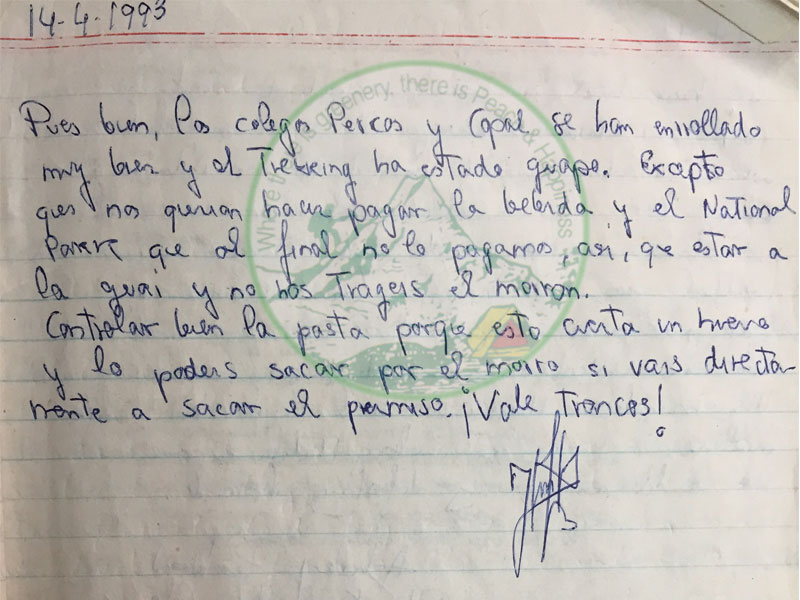 14-4-1993
Where there is greenery, there is Peace & Happiness
Pues bien, los colegos Percos y Copal se han enrollado
muy bien y el Trekking ha estado guapo. Excepto
ques nos querian hacer pagar la bebida y el National
Parere que al final no lo pagamos, asi, que estar a
la guai y no hos Trageis el marron.
Controlar bien la pasta porque esto cuesta un huevo
y lo podeis sacar por el morro si vais directa-
mente a sacar el premiso. ¡Vale Troncos!